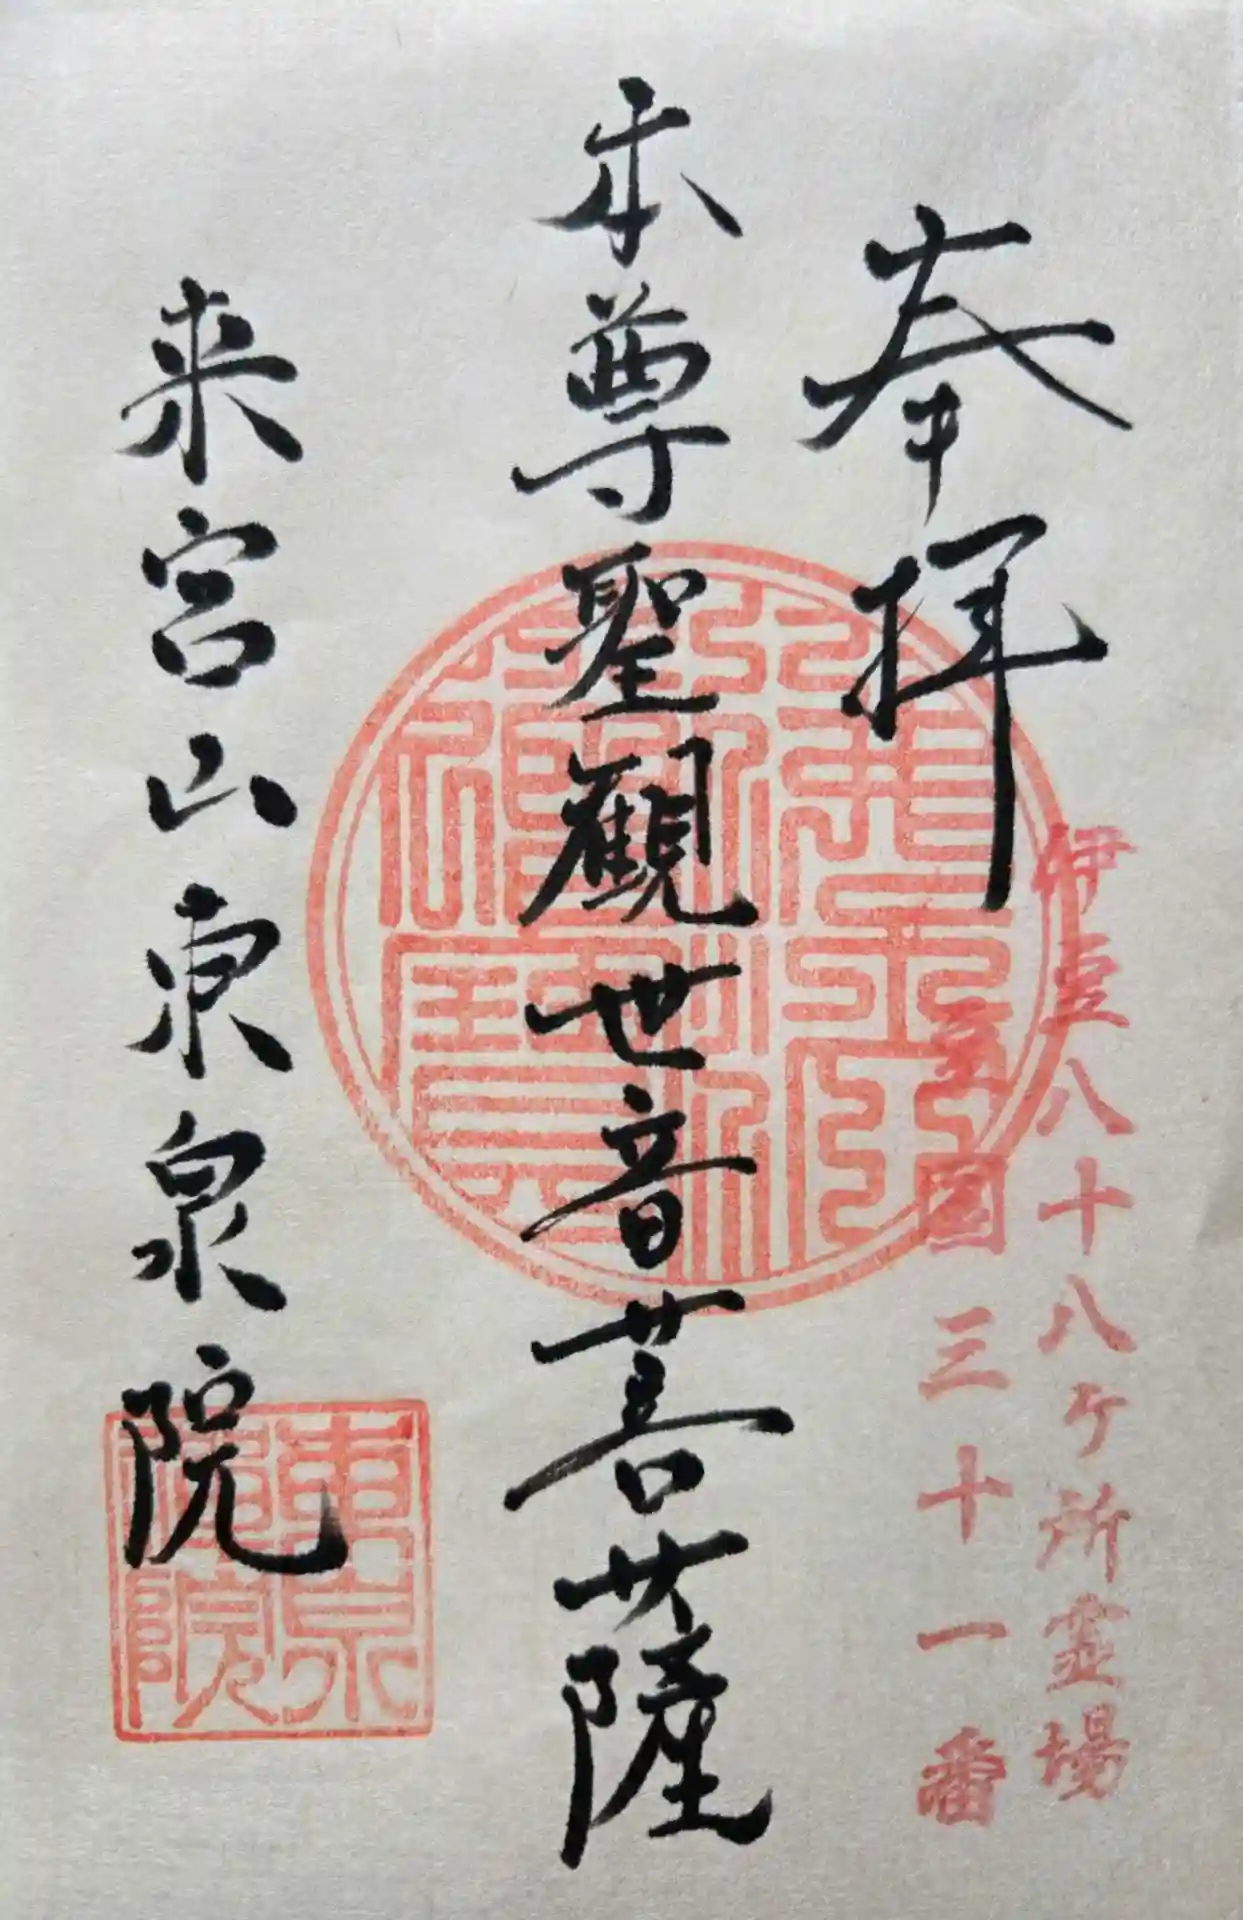 伊豆八十八ケ所霊場
三十一番
奉拝
本尊聖觀世音菩薩
来宮山東泉院
東泉
院